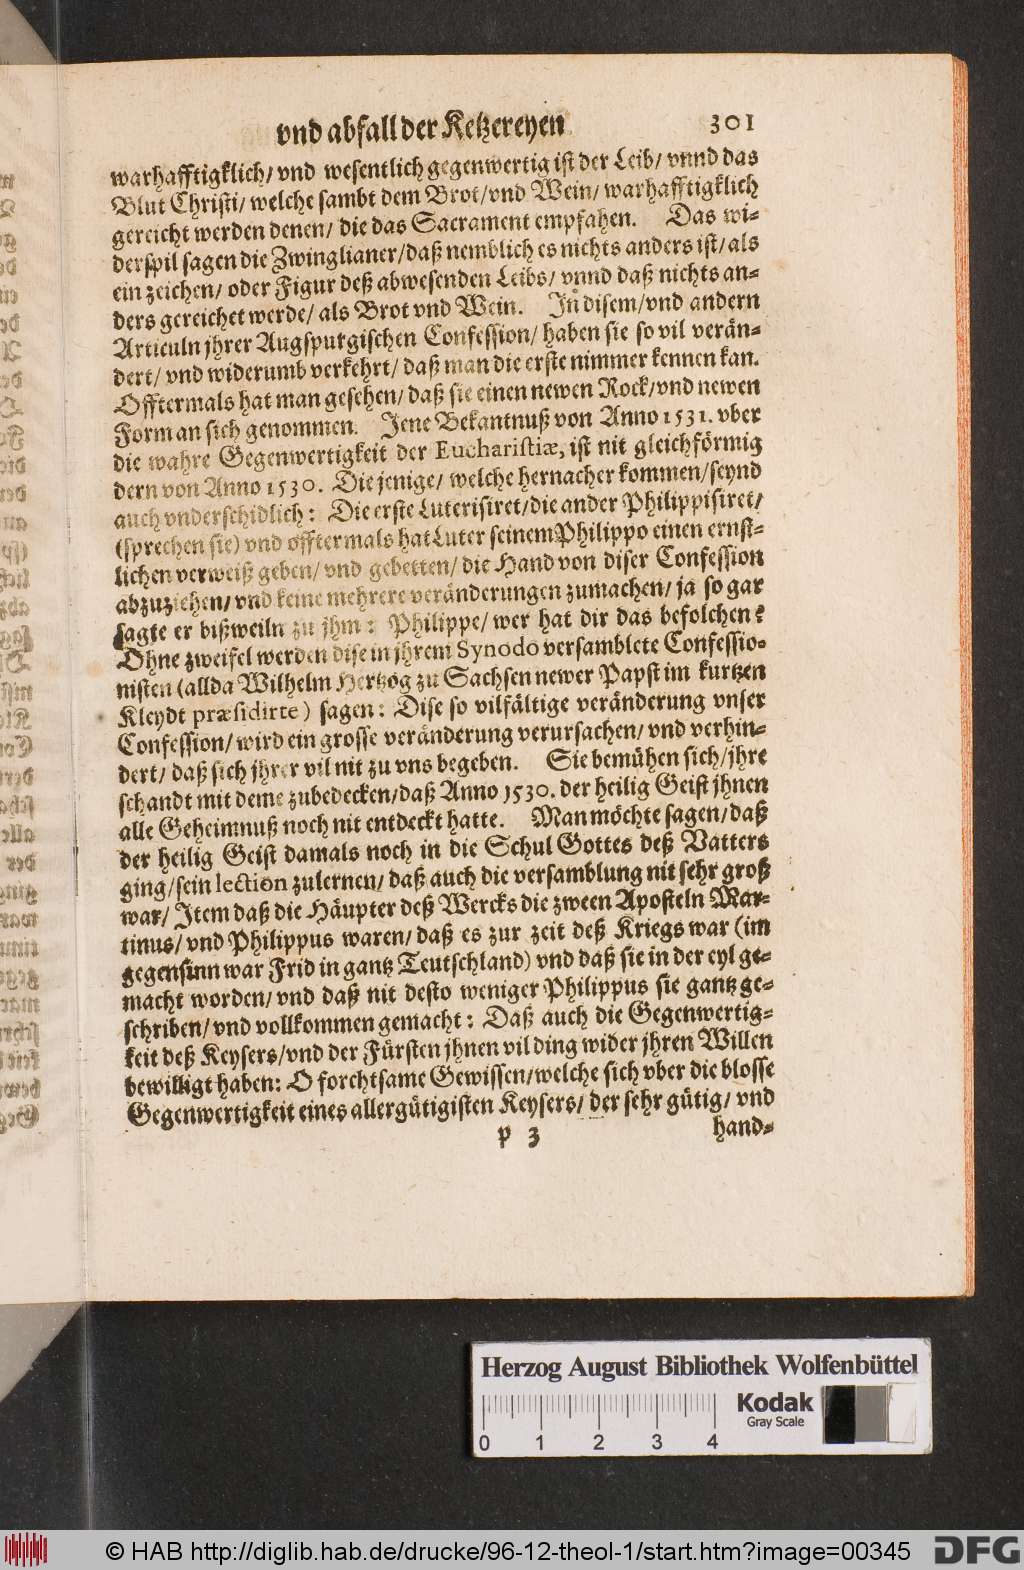 vnd abfall der Ketzereyen 301
warhafftigklich/ vnd wesentlich gegenwertig ist der Leib/ vnnd das
Blut Christi/ welche sambt dem Brot/ vnd Wein/ warhafftigklich
gereicht werden denen/ die das Sacrament empfahen. Das wi-
derspil sagen die Zwinglianer/ daß nemblich es nichts anders ist/ als
ein zeichen/ oder Figur deß abwesenden Leibs/ vnnd daß nichts an-
ders gereichet werde/ als Brot vnd Wein. In disem/ vnd andern
Articuln jhrer Augspurgischen Confession/ haben sie so vil verän-
dert/ vnd widerumb verkehrt/ daß man die erste nimmer kennen kan.
Offtermals hat man gesehen/ daß sie einen newen Rock/ vnd newen
Form an sich genommen. Jene Bekantnuß von Anno 1531. vber
die wahre Gegenwertigkeit der Eucharistiæ, ist nit gleichförmig
dern von Anno 1530. Die jenige/ welche hernacher kommen/ seynd
auch vnderschidlich: Die erste Luterisiret/ die ander Philippisiret/
(sprechen sie) vnd offtermals hat Luter seinem Philippo einen ernst-
lichen verweiß geben/ vnd gebetten/ die Hand von diser Confession
abzuziehen/ vnd keine mehrere veränderungen zumachen/ ja so gar
sagte er bißweiln zu jhm: Philippe/ wer hat dir das befolchen?
Ohne zweifel werden dise in jhrem Synodo versamblete Confessio-
nisten (allda Wilhelm Hertzog zu Sachsen newer Papst im kurtzen
Kleydt præsidirte) sagen: Dise so vilfältige veränderung vnser
Confession/ wird ein grosse veränderung verursachen/ vnd verhin-
dert/ daß sich jhrer vil nit zu vns begeben. Sie bemühen sich/ jhre
schandt mit deme zubedecken/ daß Anno 1530. der heilig Geist jhnen
alle Geheimnuß noch nit entdeckt hatte. Man möchte sagen/ daß
der heilig Geist damals noch in die Schul Gottes deß Vatters
ging/ sein lection zulernen/ daß auch die versamblung nit sehr groß
war/ Item daß die Häupter deß Wercks die zween Aposteln Mar-
tinus/ vnd Philippus waren/ daß es zur zeit deß Kriegs war (im
gegensinn war Frid in gantz Teutschland) vnd daß sie in der eyl ge-
macht worden/ vnd daß nit desto weniger Philippus sie gantz ge-
schriben/ vnd vollkommen gemacht: Daß auch die Gegenwertig-
keit deß Keysers/ vnd der Fürsten jhnen vil ding wider jhren Willen
bewilligt haben: O forchtsame Gewissen/ welche sich vber die blosse
Gegenwertigkeit eines allergütigisten Keysers/ der sehr gütig/ vnd
p 3 hand-
Herzog August Bibliothek Wolfenbüttel
Kodak
Gray Scale
0 1 2 3 4
© HAB http://diglib.hab.de/drucke/96-12-theol-1/start.htm?image=00345
DFG